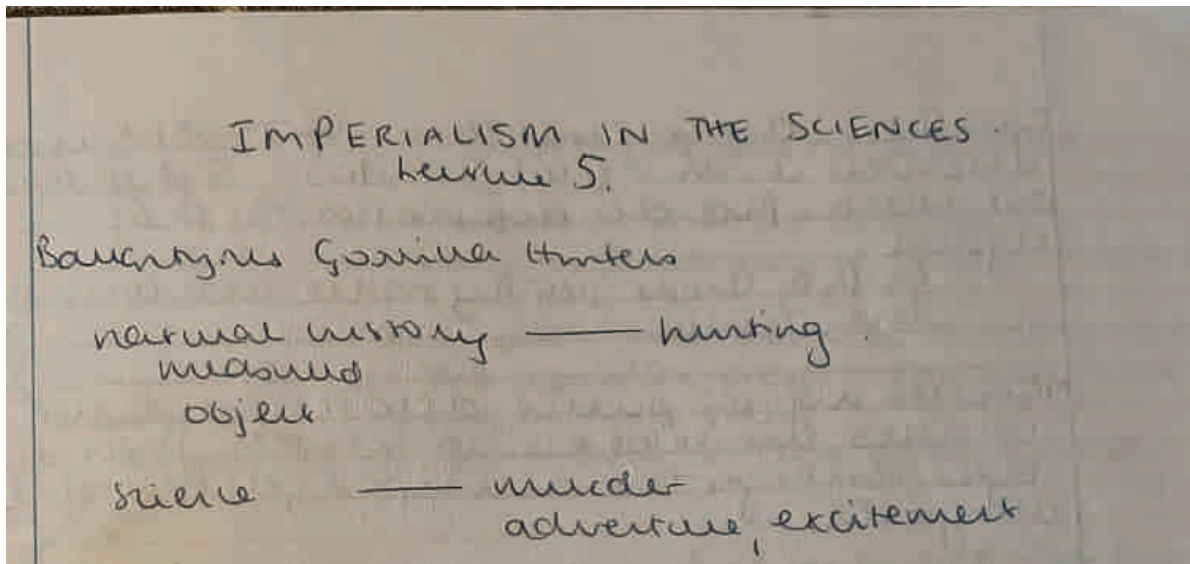 IMPERIALISM IN THE SCIENCES.
Lecture 5.
Ballantynes Gorilla Hunters
natural history — hunting.
measured
object
science — murder
adventure, excitement